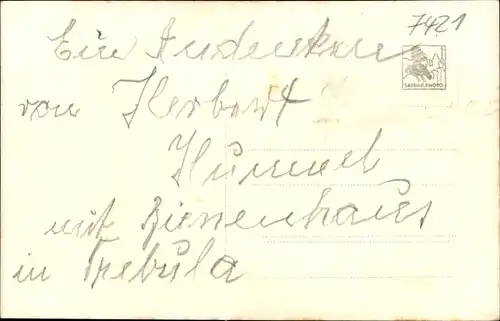 7421
Ein Andenken
von Herbert
Hummel
mit Bienenhaus
in Trebula